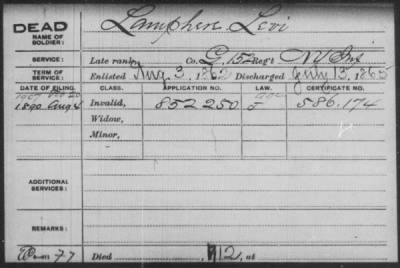 DEAD
NAME OF SOLDIER: Lamphere Levi
SERVICE: Late rank, Co. G, 152 Reg't NY Inf
TERM OF SERVICE: Enlisted Aug 3, 1862 Discharged July 13, 1865
DATE OF FILING. CLASS. APPLICATION NO. LAW. CERTIFICATE NO.
1907
1890 Aug 4 Invalid, 852 250 586.174
Widow,
Minor,
ADDITIONAL SERVICES:
REMARKS:
77 Died 12, at